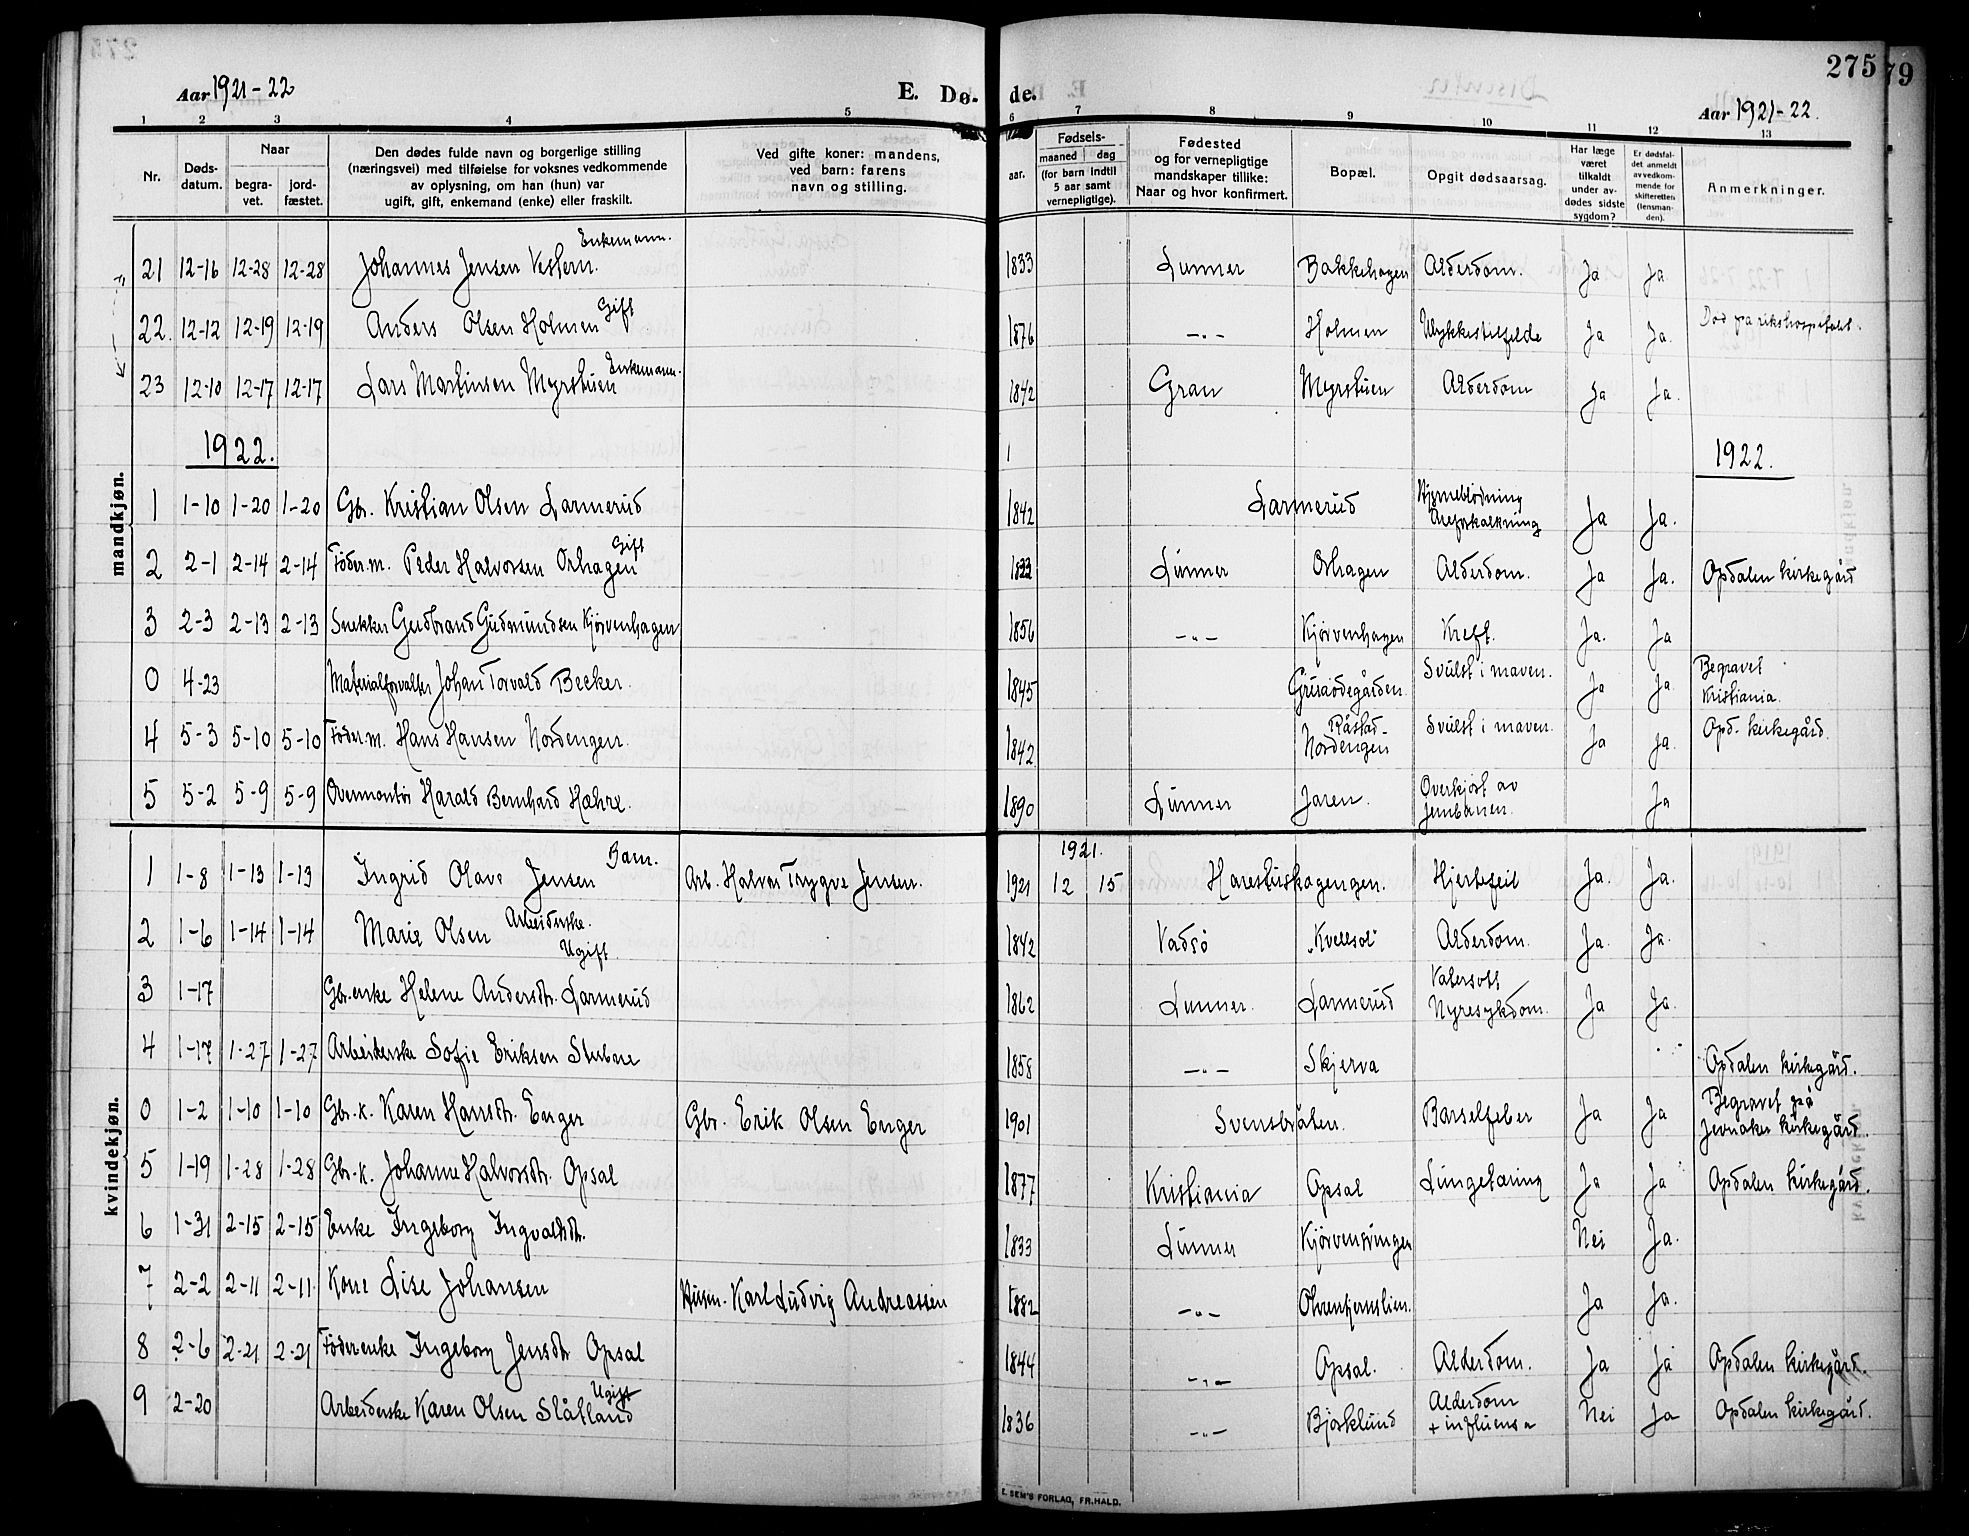 275
79
Aar 1921-22
E. Dø-
de.
Aar 1921-22.
1 2 3 4 5 6 7 8 9 10 11 12 13
Nr.
Døds-
datum.
Naar
begra-
vet.
jord-
fæstet.
Den dødes fulde navn og borgerlige stilling
(næringsvei) med tilføielse for voksnes vedkommende
av oplysning, om han (hun) var
ugift, gift, enkemand (enke) eller fraskilt.
Ved gifte koner: mandens,
ved barn: farens
navn og stilling.
aar.
Fødsels-
maaned dag
(for barn indtil
5 aar samt
vernepligtige).
Fødested
og for vernepligtige
mandskaper tillike:
Naar og hvor konfirmert.
Bopæl.
Opgit dødsaarsag.
Har læge
været
tilkaldt
under av-
dødes sidste
sygdom?
Er dødsfal-
det anmeldt
av vedkom-
mende for
skifteretten
(lensman-
den).
Anmerkninger.
mandkjøn.
21 12-16 12-28 12-28 Johannes Jensen Vestern. Enkemann. 1833 Lunner Bakkehagen Alderdom. Ja Ja.
22. 12-12 12-19 12-19 Anders Olsen Holmen Gift 1876 -"- Holmen Ulykkestilfelde Ja Ja. Død på rikshospitalet.
23 12-10 12-17 12-17 Lars Martinsen Myrstuen Enkemann. 1842 Gran Myrstuen Alderdom Ja Ja.
1922. 1922.
1 1-10 1-20 1-20 Gbr. Kristian Olsen Larmerud 1842 Larmerud Hjerneblødning
Areforkalkning Ja Ja.
2 2-1 2-14 2-14 Föder.m. Peder Halvorsen Orhagen Gift Lunner Orhagen Alderdom. Ja Ja. Opdalen kirkegård
3 2-3 2-13 2-13 Snekker Gudbrand Gudmundsen Kjørvenhagen 1856 -"- Kjørvenhagen Kreft. Ja. Ja
0 4-23 Materialforvalter Johan Torvald Becker. 1845 Svulst i maven. Ja Ja. Begravet
Kristiania.
4 5-3 5-10 5-10 Föder.m. Hans Hansen Nordengen. 1842 Råstad-
Nordengen Svulst i maven. Ja Ja. Opd. kirkegård.
5 5-2 5-9 5-9 Overmontör Harald Bernhard Hæhre. 1890 Lunner Jaren. Overkjört av
jernbanen. Ja
kvindekjøn.
1921.
1 1-8 1-13 1-13 Ingrid Olava Jensen Barn. Arb. Halvor Trygve Jensen. 1921 12 15 Harestuskogengen. Hjertefeil Ja. Ja.
2 1-6 1-14 1-14 Marie Olsen Arbeiderske.
Ugift. 1842 Vadsö "Kveldsol" Alderdom. Ja. Ja.
3 1-17 Gbr.enke Helene Andersdtr. Larmerud 1862 Lunner. Larmerud Vatersott
Nyresykdom. Ja Ja.
4 1-17 1-27 1-27 Arbeiderske Sofie Eriksen Stubare 1858 -"- Skjerva Opdalen kirkegård.
0 1-2 1-10 1-10 Gbr.k. Karen Hansdtr. Enger Gbr. Erik Olsen Enger 1901 Svensbråten. Barselfeber Ja Ja Begravet på
Jevnaker kirkegård.
5 1-19 1-28 1-28 Gbr.k. Johanne Halvorsdtr. Opsal 1877 Kristiania Opsal Lungetæring Ja Ja Opdalen kirkegård.
6 1-31 2-15 2-15 Enke Ingeborg Ingvaldsdtr. 1833 Lunner Kjørvensvingen Nei Ja.
7 2-2 2-11 2-11. Kone Lise Johansen Karl Ludvig Andreassen 1882 -"- Ja Ja.
8 2-6 2-21 2-21 Föderenke Ingeborg Jensdtr Opsal 1844 -"- Opsal. Alderdom. Ja Ja Opdalen kirkegård.
9 2-20 Arbeiderske Karen Olsen Slåtland Ugift 1836 -"- Bjørklund Alderdom
+ influensa Nei Ja Opdalen kirkegård.
E. SEM'S FORLAG, FR.HALD.